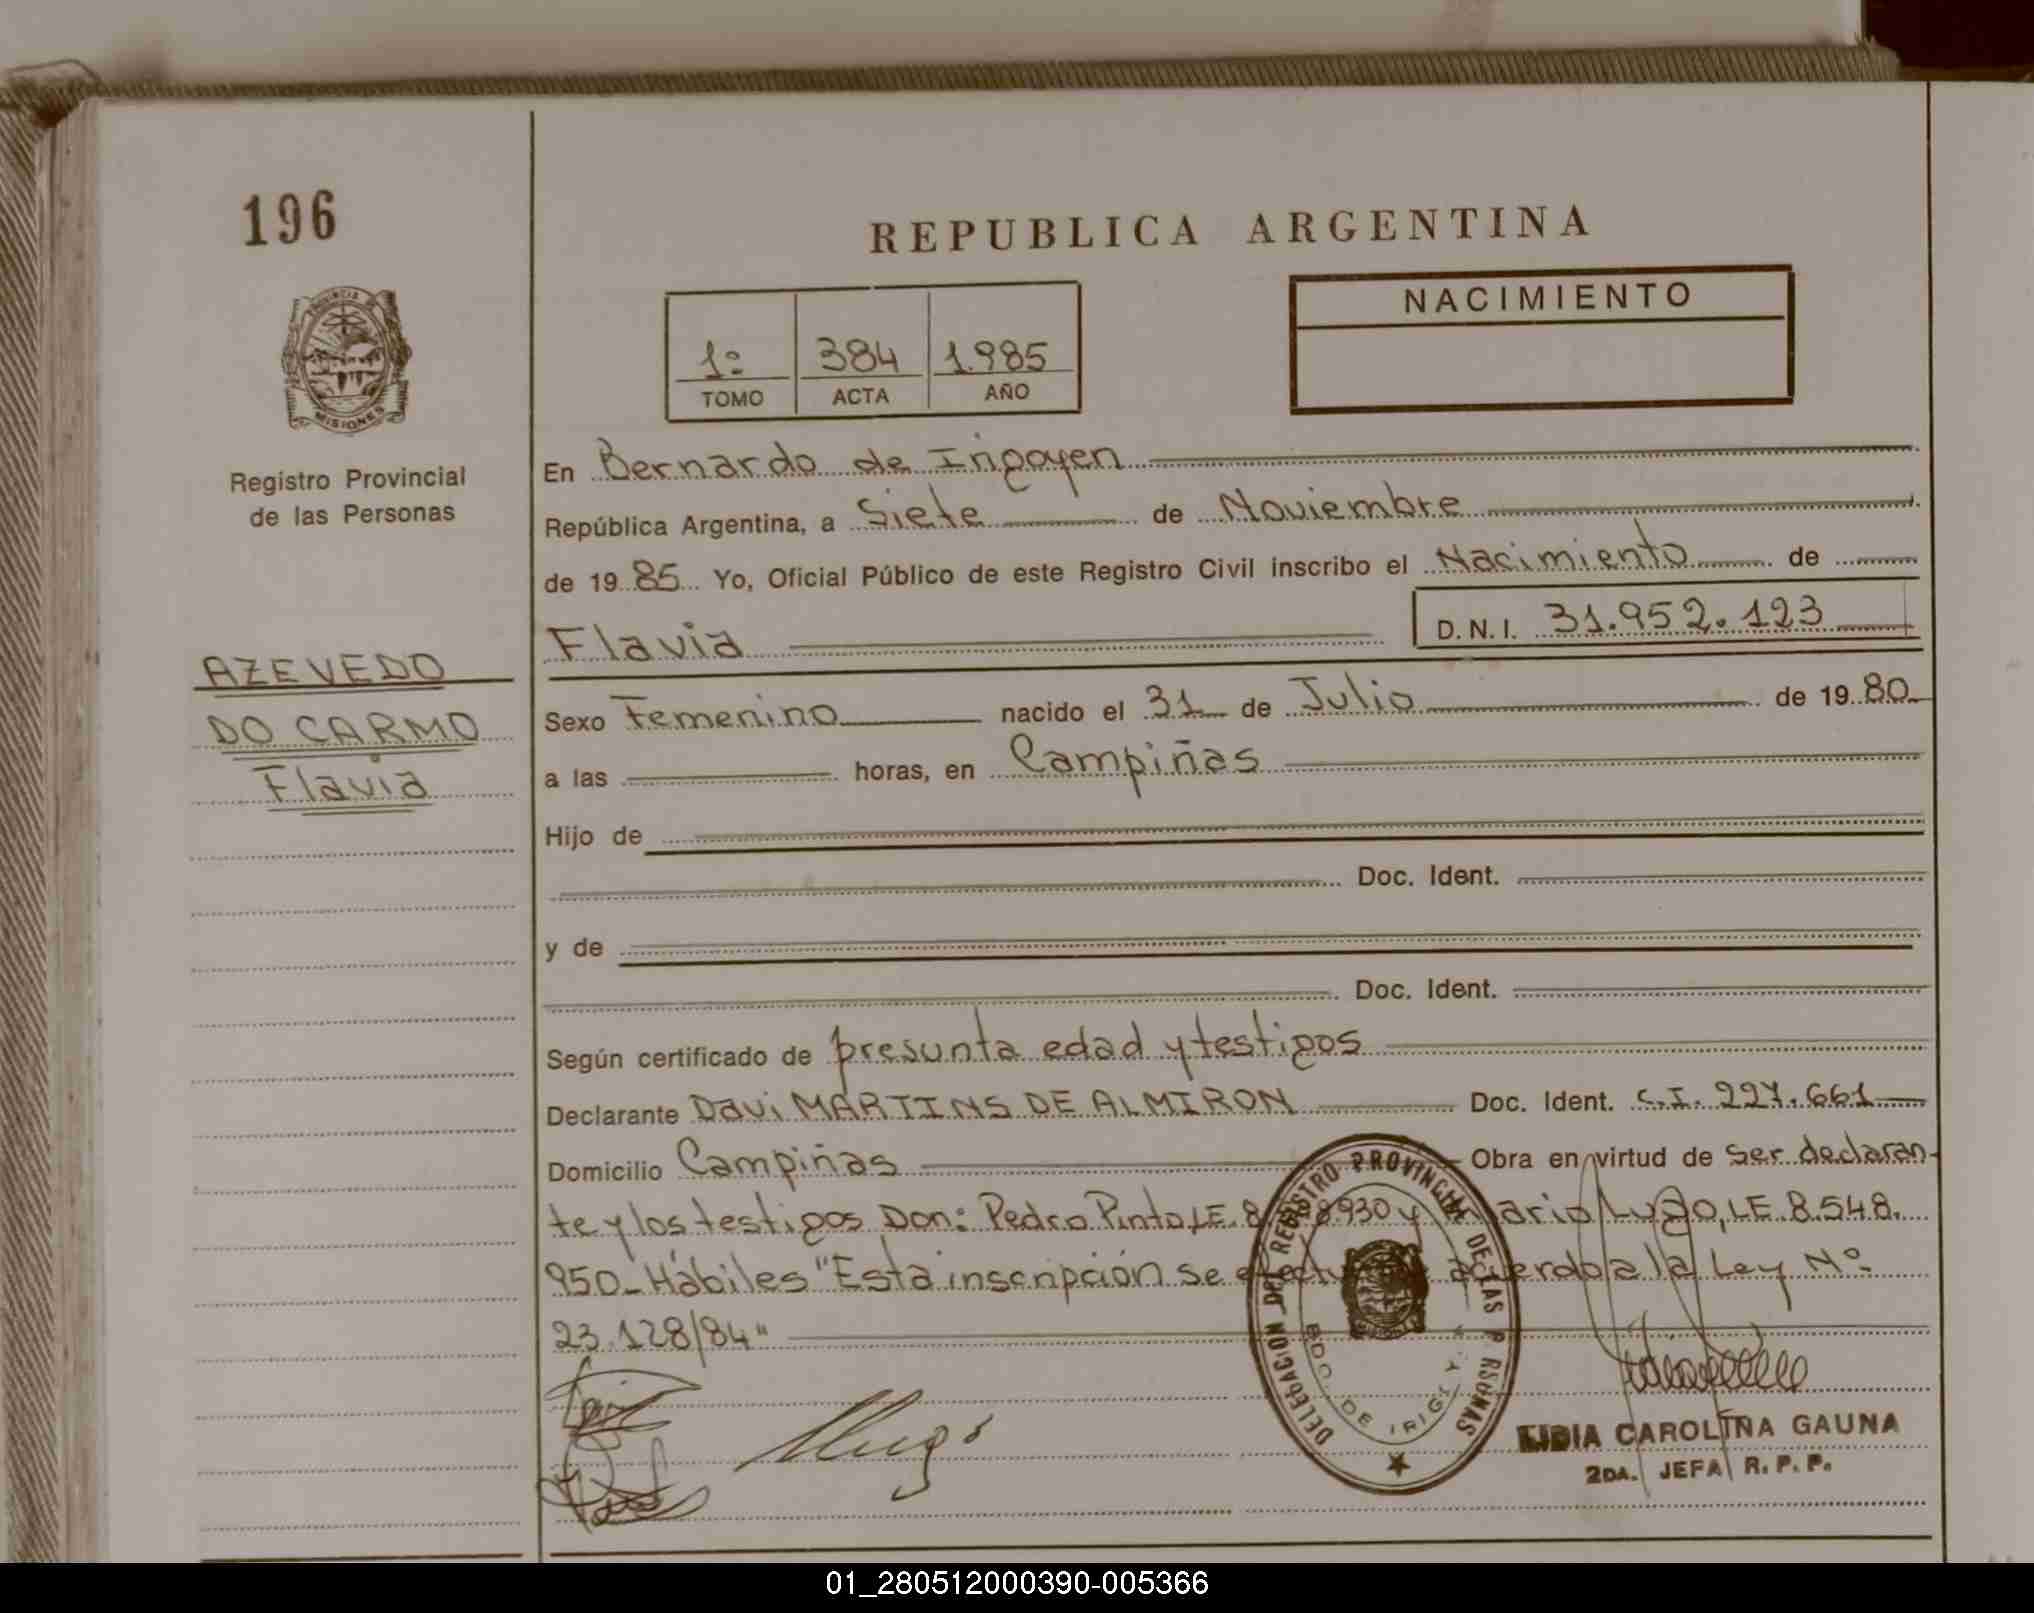 196
REPUBLICA ARGENTINA
NACIMIENTO
1º 384 1.985
TOMO ACTA AÑO
PROVINCIA DE
MISIONES
Registro Provincial
de las Personas
AZEVEDO
DO CARMO
Flavia
En Bernardo de Irigoyen
República Argentina, a Siete de Noviembre
de 1985 Yo, Oficial Público de este Registro Civil inscribo el Nacimiento de
Flavia D.N.I. 31.952.123
Sexo Femenino nacido el 31 de Julio de 1980
a las horas, en Campiñas
Hijo de
Doc. Ident.
y de
Doc. Ident.
Según certificado de presunta edad y testigos
Declarante Davi MARTINS DE ALMIRON Doc. Ident. C.I. 227.661
Domicilio Campiñas Obra en virtud de Ser declaran-
te y los testigos Don: Pedro Pinto, LE. 8. 8.930 y Lugo, LE. 8.548.
950- Hábiles "Esta inscripción se acuerdo a la Ley Nº
23.128/84"
DELEGACION DEL REGISTRO PROVINCIAL DE LAS PERSONAS
BDO. DE IRIGOYEN
Lugo
LIDIA CAROLINA GAUNA
2DA. JEFA R. P. P.
01_280512000390-005366